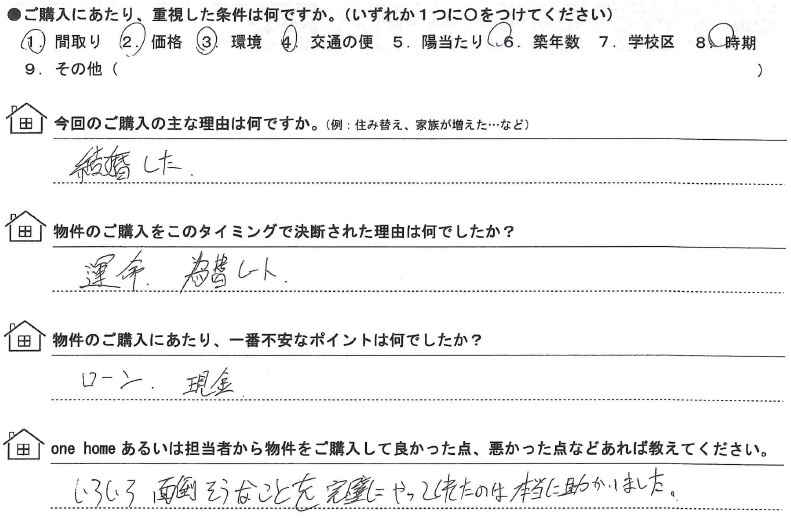 ●ご購入にあたり、重視した条件は何ですか。（いずれか１つに○をつけてください）
１．間取り ２．価格 ３．環境 ４．交通の便 ５．陽当たり ６．築年数 ７．学校区 ８．時期
９．その他（ ）
今回のご購入の主な理由は何ですか。（例：住み替え、家族が増えた…など）
結婚した.
物件のご購入をこのタイミングで決断された理由は何でしたか？
運命. 為替レート.
物件のご購入にあたり、一番不安なポイントは何でしたか？
ローン. 現金
one home あるいは担当者から物件をご購入して良かった点、悪かった点などあれば教えてください。
いろいろ面倒そうなことを完璧にやってくれたのは本当に助かりました。